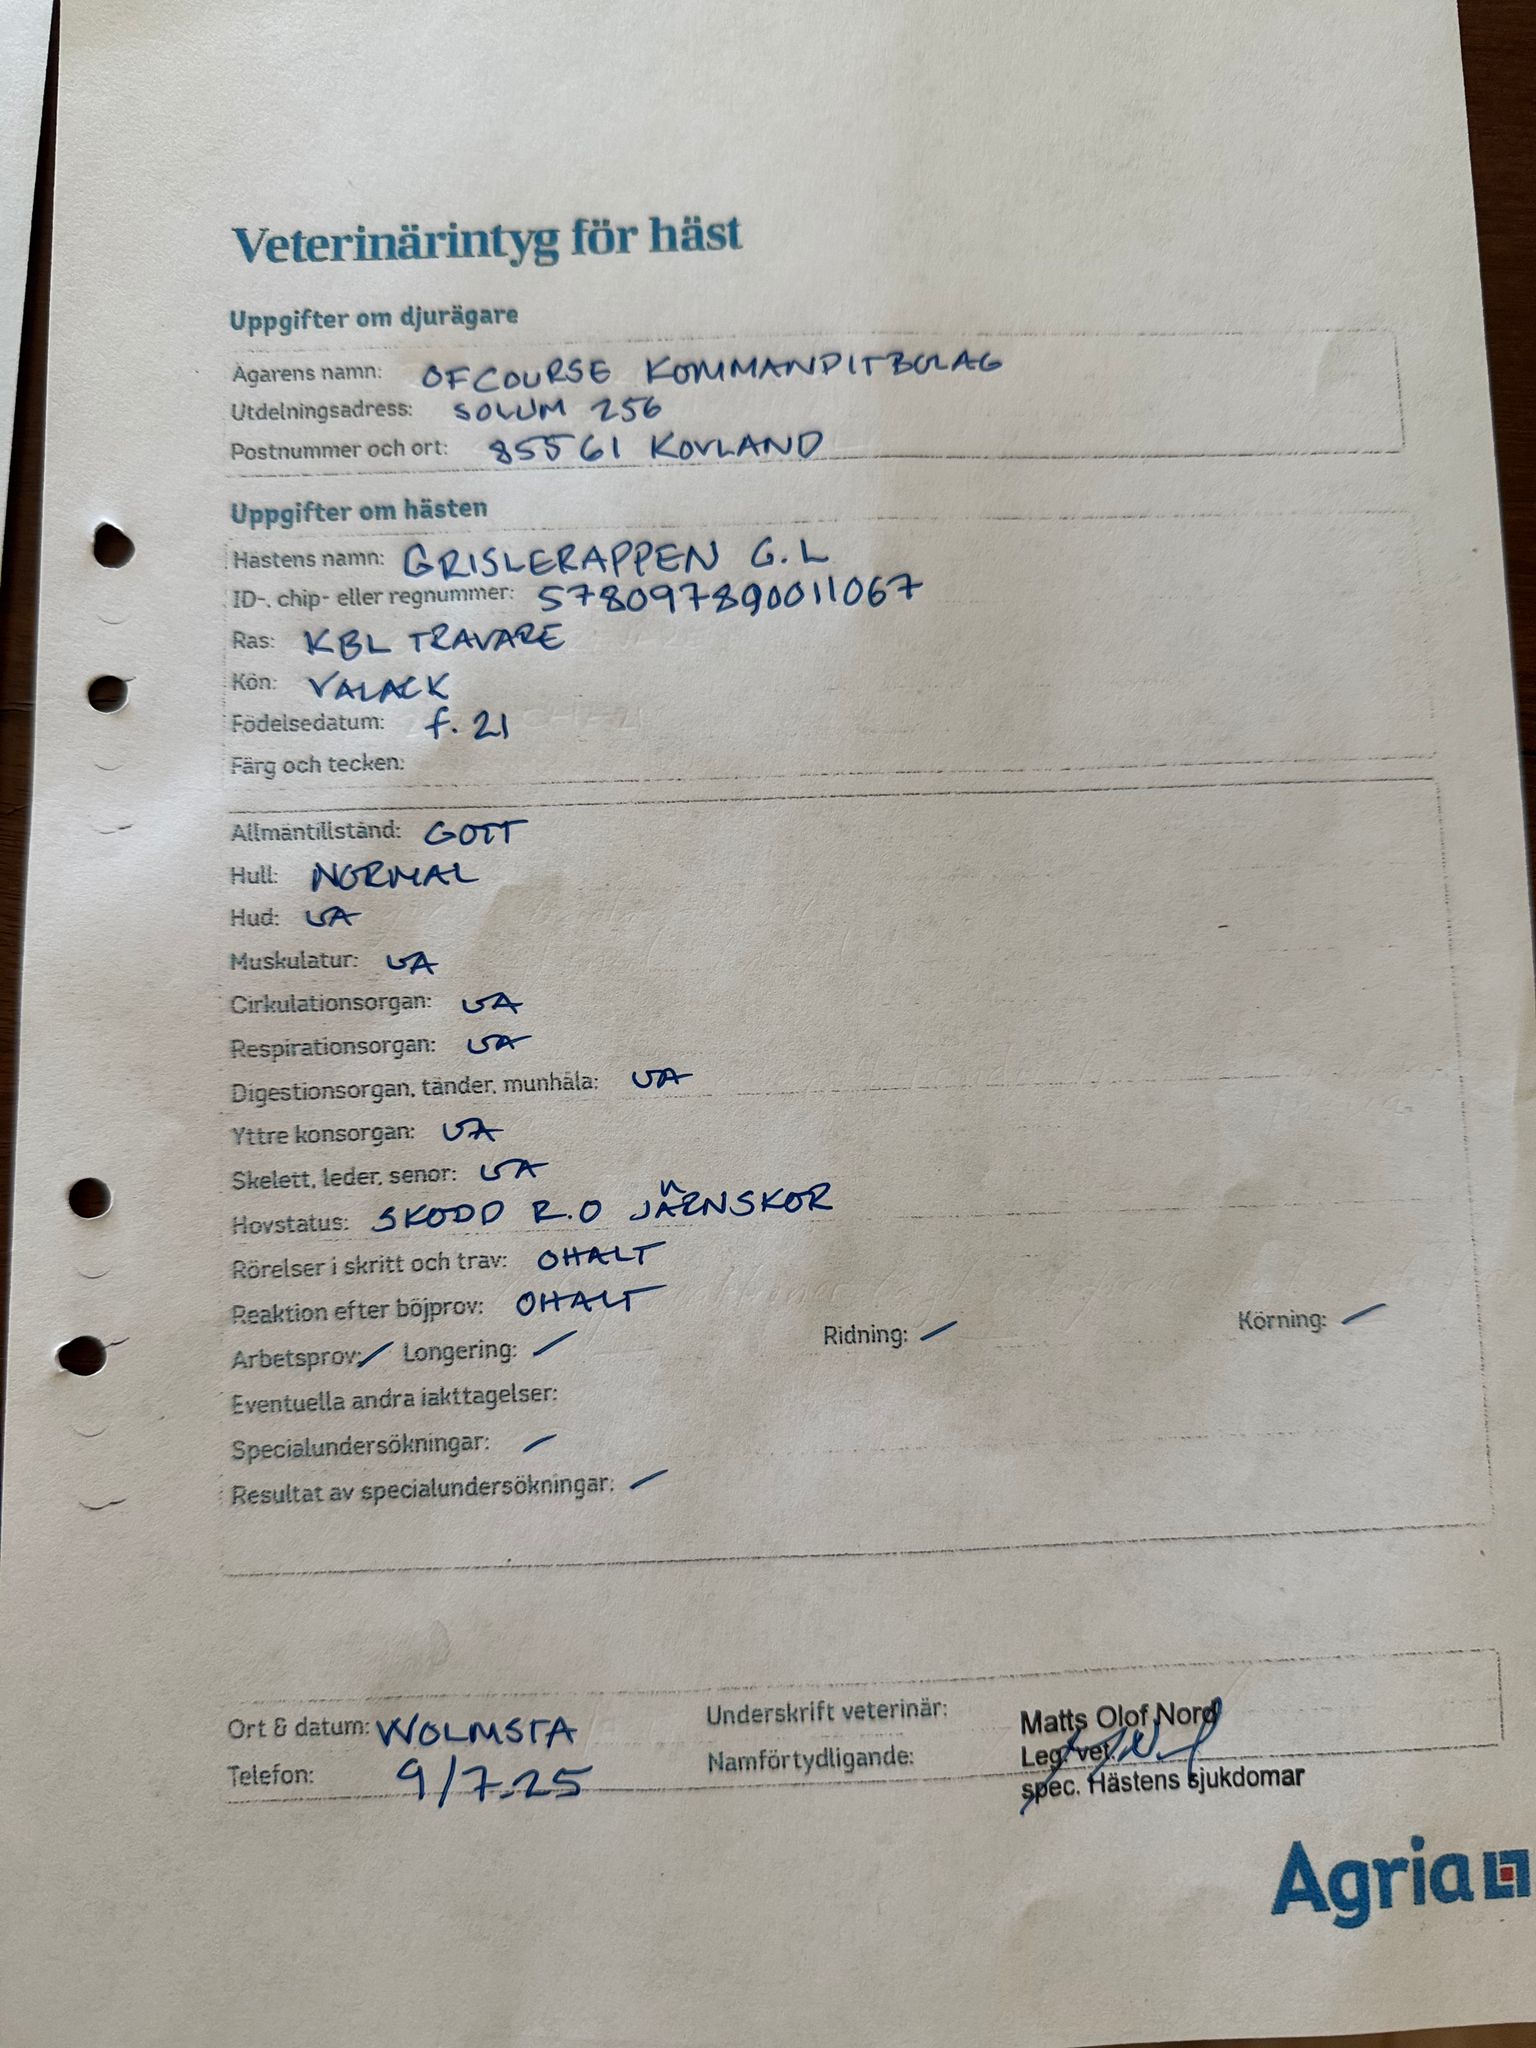 Veterinärintyg för häst
Uppgifter om djurägare
Ägarens namn: OFCOURSE KOMMANDITBOLAG
Utdelningsadress: SOLUM 256
Postnummer och ort: 85561 KOVLAND
Uppgifter om hästen
Hästens namn: GRISLERAPPEN G.L
ID-, chip- eller regnummer: 578097890011067
Ras: KBL TRAVARE
Kön: VALACK
Födelsedatum: f. 21
Färg och tecken:
Allmäntillstånd: GOTT
Hull: NORMAL
Hud: UA
Muskulatur: UA
Cirkulationsorgan: UA
Respirationsorgan: UA
Digestionsorgan, tänder, munhåla: UA
Yttre könsorgan: UA
Skelett, leder, senor: UA
Hovstatus: SKODD R.O JÄRNSKOR
Rörelser i skritt och trav: OHALT
Reaktion efter böjprov: OHALT
Arbetsprov: / Longering: / Ridning: / Körning: /
Eventuella andra iakttagelser:
Specialundersökningar: /
Resultat av specialundersökningar: /
Ort & datum: WOLMSTA Underskrift veterinär: Matts Olof Nord
Telefon: 9/7.25 Namförtydligande: Leg. vet.
spec. Hästens sjukdomar
Agria